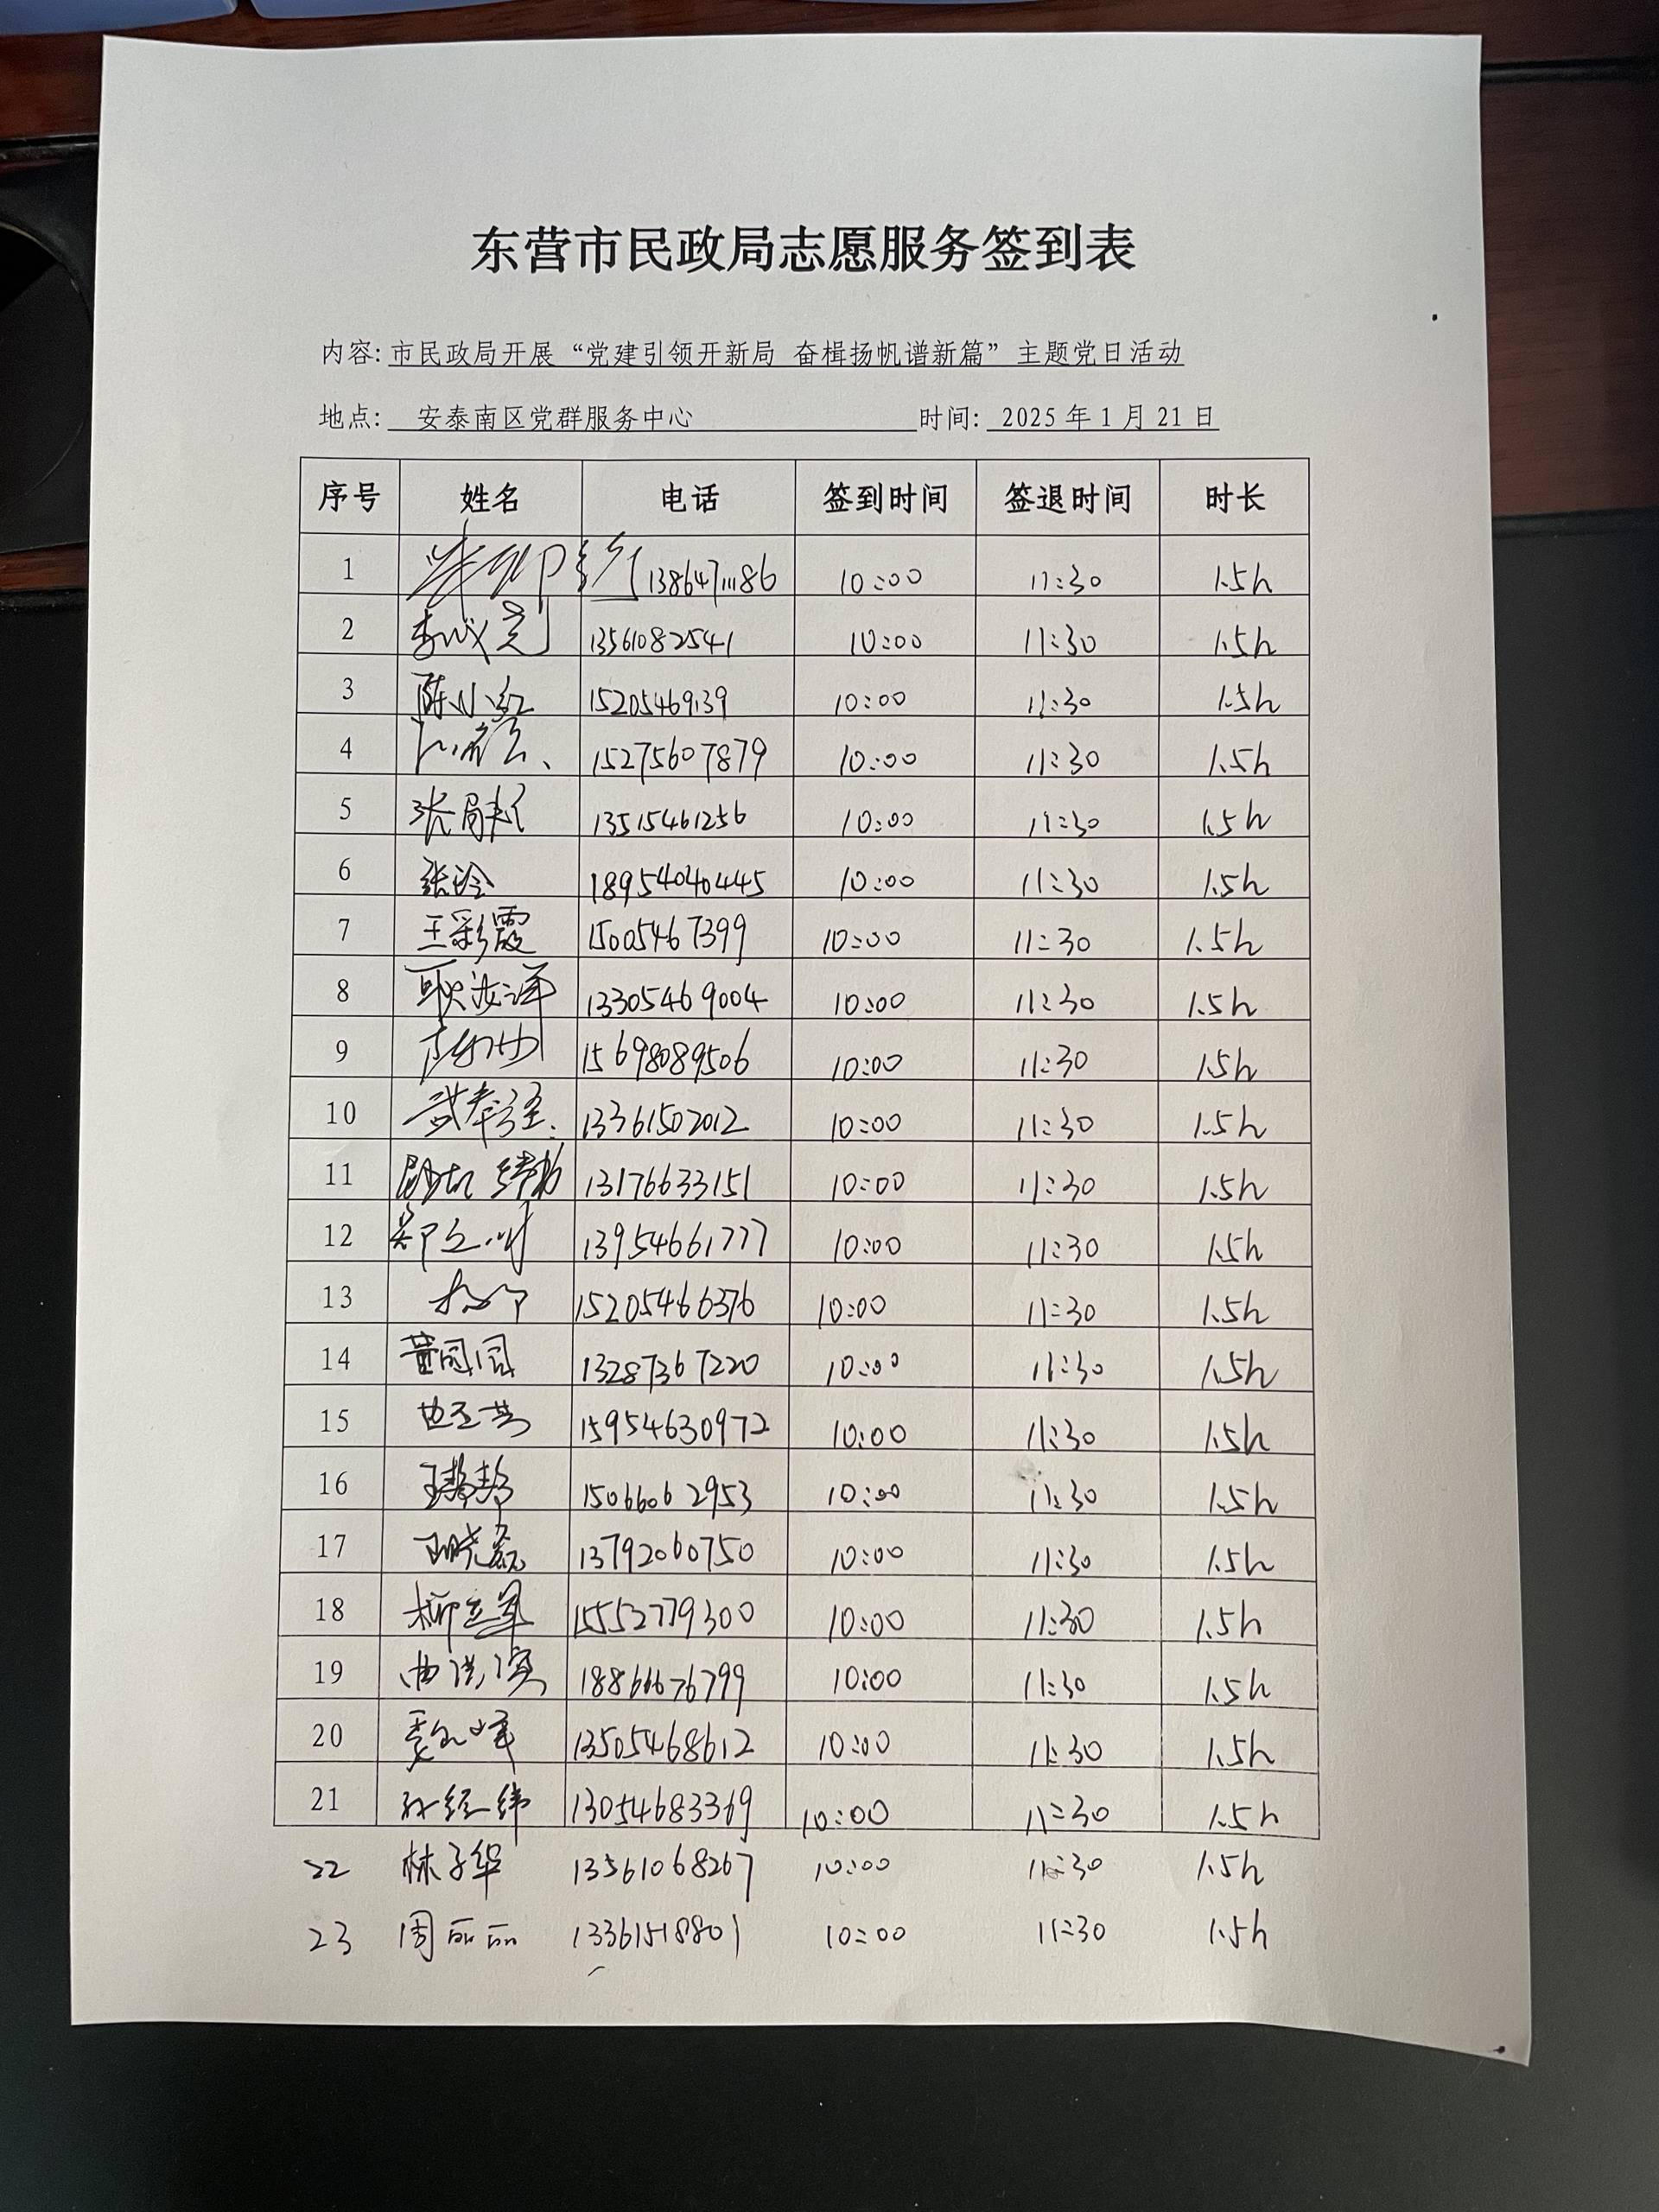 东营市民政局志愿服务签到表
内容: 市民政局开展“党建引领开新局 奋楫扬帆谱新篇”主题党日活动
地点: 安泰南区党群服务中心 时间: 2025年1月21日
序号 姓名 电话 签到时间 签退时间 时长
1 13864711186 10:00 11:30 1.5h
2 13561082541 10:00 11:30 1.5h
3 陈小红 15205469139 10:00 11:30 1.5h
4 15275607879 10:00 11:30 1.5h
5 13515461256 10:00 11:30 1.5h
6 张玲 18954040445 10:00 11:30 1.5h
7 王彩霞 15005467399 10:00 11:30 1.5h
8 13305469004 10:00 11:30 1.5h
9 15698089506 10:00 11:30 1.5h
10 13361502012 10:00 11:30 1.5h
11 13176633151 10:00 11:30 1.5h
12 13954661777 10:00 11:30 1.5h
13 15205466376 10:00 11:30 1.5h
14 13287367220 10:00 11:30 1.5h
15 15954630972 10:00 11:30 1.5h
16 王静静 15066062953 10:00 11:30 1.5h
17 王晓磊 13792060750 10:00 11:30 1.5h
18 柳立军 15552779300 10:00 11:30 1.5h
19 曲洪滨 18866676799 10:00 11:30 1.5h
20 13505468612 10:00 11:30 1.5h
21 孙经纬 13054683369 10:00 11:30 1.5h
22 林子华 13561068267 10:00 11:30 1.5h
23 周丽丽 13361518801 10:00 11:30 1.5h